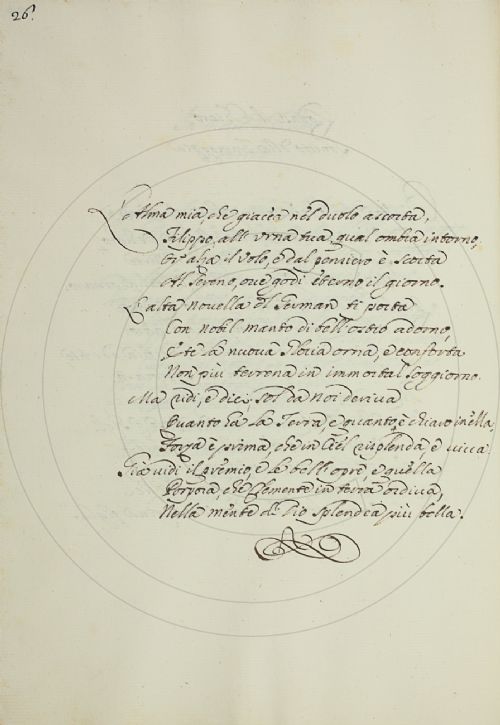 26.
L'Alma mia, che giacea nel duolo assorta,
Filippo, all'Urna tua, qual ombra intorno,
Or' alza il volo, e dal pensiero è scorta
Al sereno, ove godi eterno il giorno.
L'alta Novella al German ti porta
Con nobil manto di bell'ostro adorno,
E te la nuova Gloria orna, e conforta
Non più terrena in immortal soggiorno.
Ma ridi, e dici, sol da noi deriva
Quanto ha la Terra, e quanto è chiaro in ella,
Forza è prima, che in Ciel risplenda, e viva
Già vidi il premio, e le bell'opre, e quella
Porpora, che Clemente in terra ordiva,
Nella mente di Dio splendea più bella.